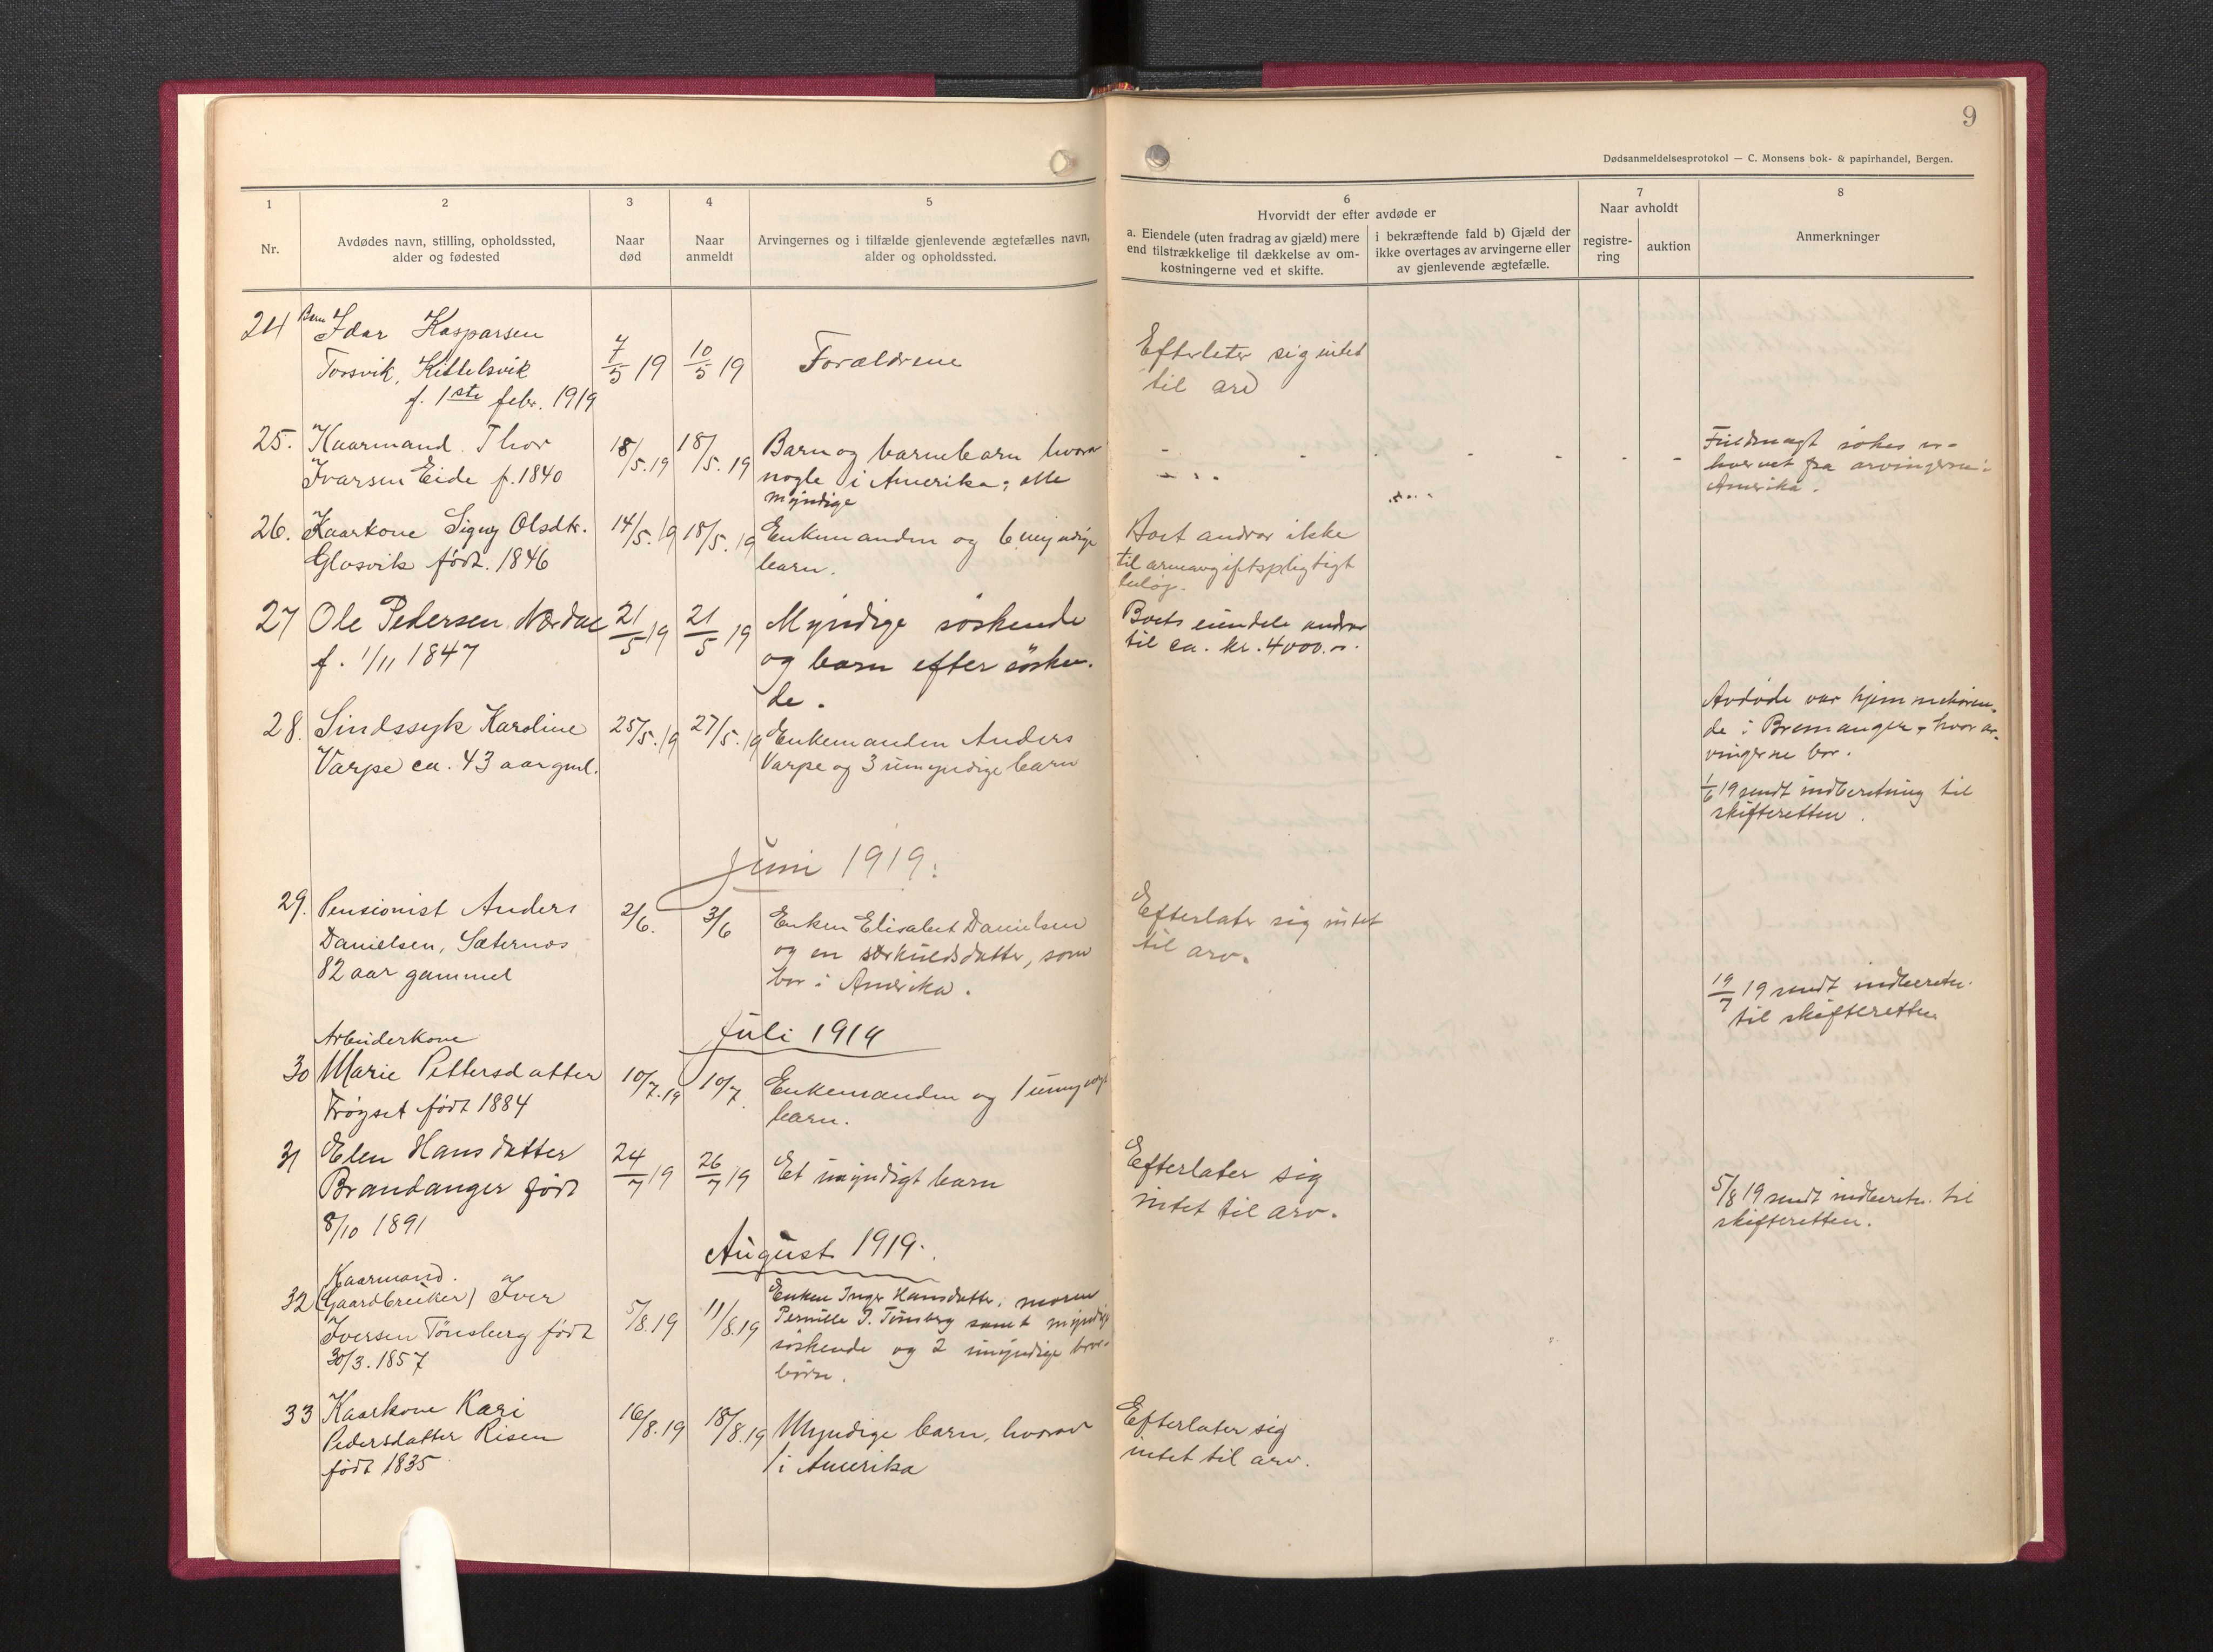 9
Dødsanmeldelsesprotokol — C. Monsens bok- & papirhandel, Bergen.
1 2 3 4 5 6 7 8
Nr.
Avdødes navn, stilling, opholdssted,
alder og fødested
Naar
død
Naar
anmeldt
Arvingernes og i tilfælde gjenlevende ægtefælles navn,
alder og opholdssted.
Hvorvidt der efter avdøde er
a. Eiendele (uten fradrag av gjæld) mere
end tilstrækkelige til dækkelse av om-
kostningerne ved et skifte.
i bekræftende fald b) Gjæld der
ikke overtages av arvingerne eller
av gjenlevende ægtefælle.
Naar avholdt
registre-
ring
auktion
Anmerkninger
24 Barn Idar Kasparsen
Torsvik, Kittelsvik
f. 1ste febr. 1919
7/5 19
10/5 19
Forældrene
Efterleter sig intet
til arv
25. Kaarmand Thor
Ivarsen Eide f. 1840
18/5.19
18/5.19
Barn og barnebarn hvorav
nogle i Amerika; alle
myndige
Fuldmagt søkes er-
hvervet fra arvingerne i
Amerika.
26. Kaarkone Signy Olsdtr.
Glosvik født. 1846
14/5.19
18/5.19
Enkemanden og 6 myndige
barn.
Boet andrar ikke
til arveavgiftspligtigt
beløp.
27 Ole Pedersen Nordal
f. 1/11 1847
21/5 19
21/5 19
Myndige søskende
og barn efter søsken-
de.
Boets eiendele andrar
til ca. kr. 4000.-.
28. Sindssyk Karoline
Varpe ca. 43 aar gml.
25/5.19
27/5.19
Enkemanden Anders
Varpe og 3 umyndige barn
Avdøde var hjemmehøren-
de i Bremanger, hvor ar-
vingerne bor.
1/6 19 sendt indberetning til
skifteretten.
Juni 1919.
29. Pensionist Anders
Danielsen, Sæternos
82 aar gammel
2/6.
3/6
Enken Elisabet Danielsen
og en særkuldsdatter, som
bor i Amerika.
Efterlater sig intet
til arv.
19/7 19 sendt indberetn.
til skifteretten
Juli 1919
Arbeiderkone
30 Marie Pettersdatter
Trøyset født 1884
10/7.19
10/7.
Enkemanden og 1 umyndig
barn.
31 Elen Hansdatter
Brandanger født
8/10 1891
24/7 19
26/7 19
Et umyndigt barn
Efterlater sig
intet til arv.
5/8 19 sendt indberetn. til
skifteretten.
August 1919.
Kaarmand.
32 (Gaardbruker) Iver
Iversen Tønsberg født
30/3. 1857
5/8.19
11/8.19
Enken Inger Hansdatter, moren
Pernille I. Tønsberg samt myndige
søskende og 2 umyndige bror-
børn.
33 Kaarkone Kari
Pedersdatter Risen
født 1835
16/8.19
18/8.19
Myndige barn, hvorav
1 i Amerika
Efterlater sig
intet til arv.